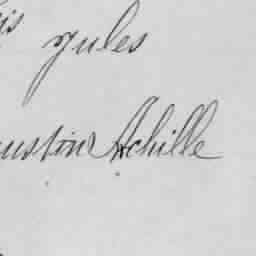 is
yules
ustin Achille